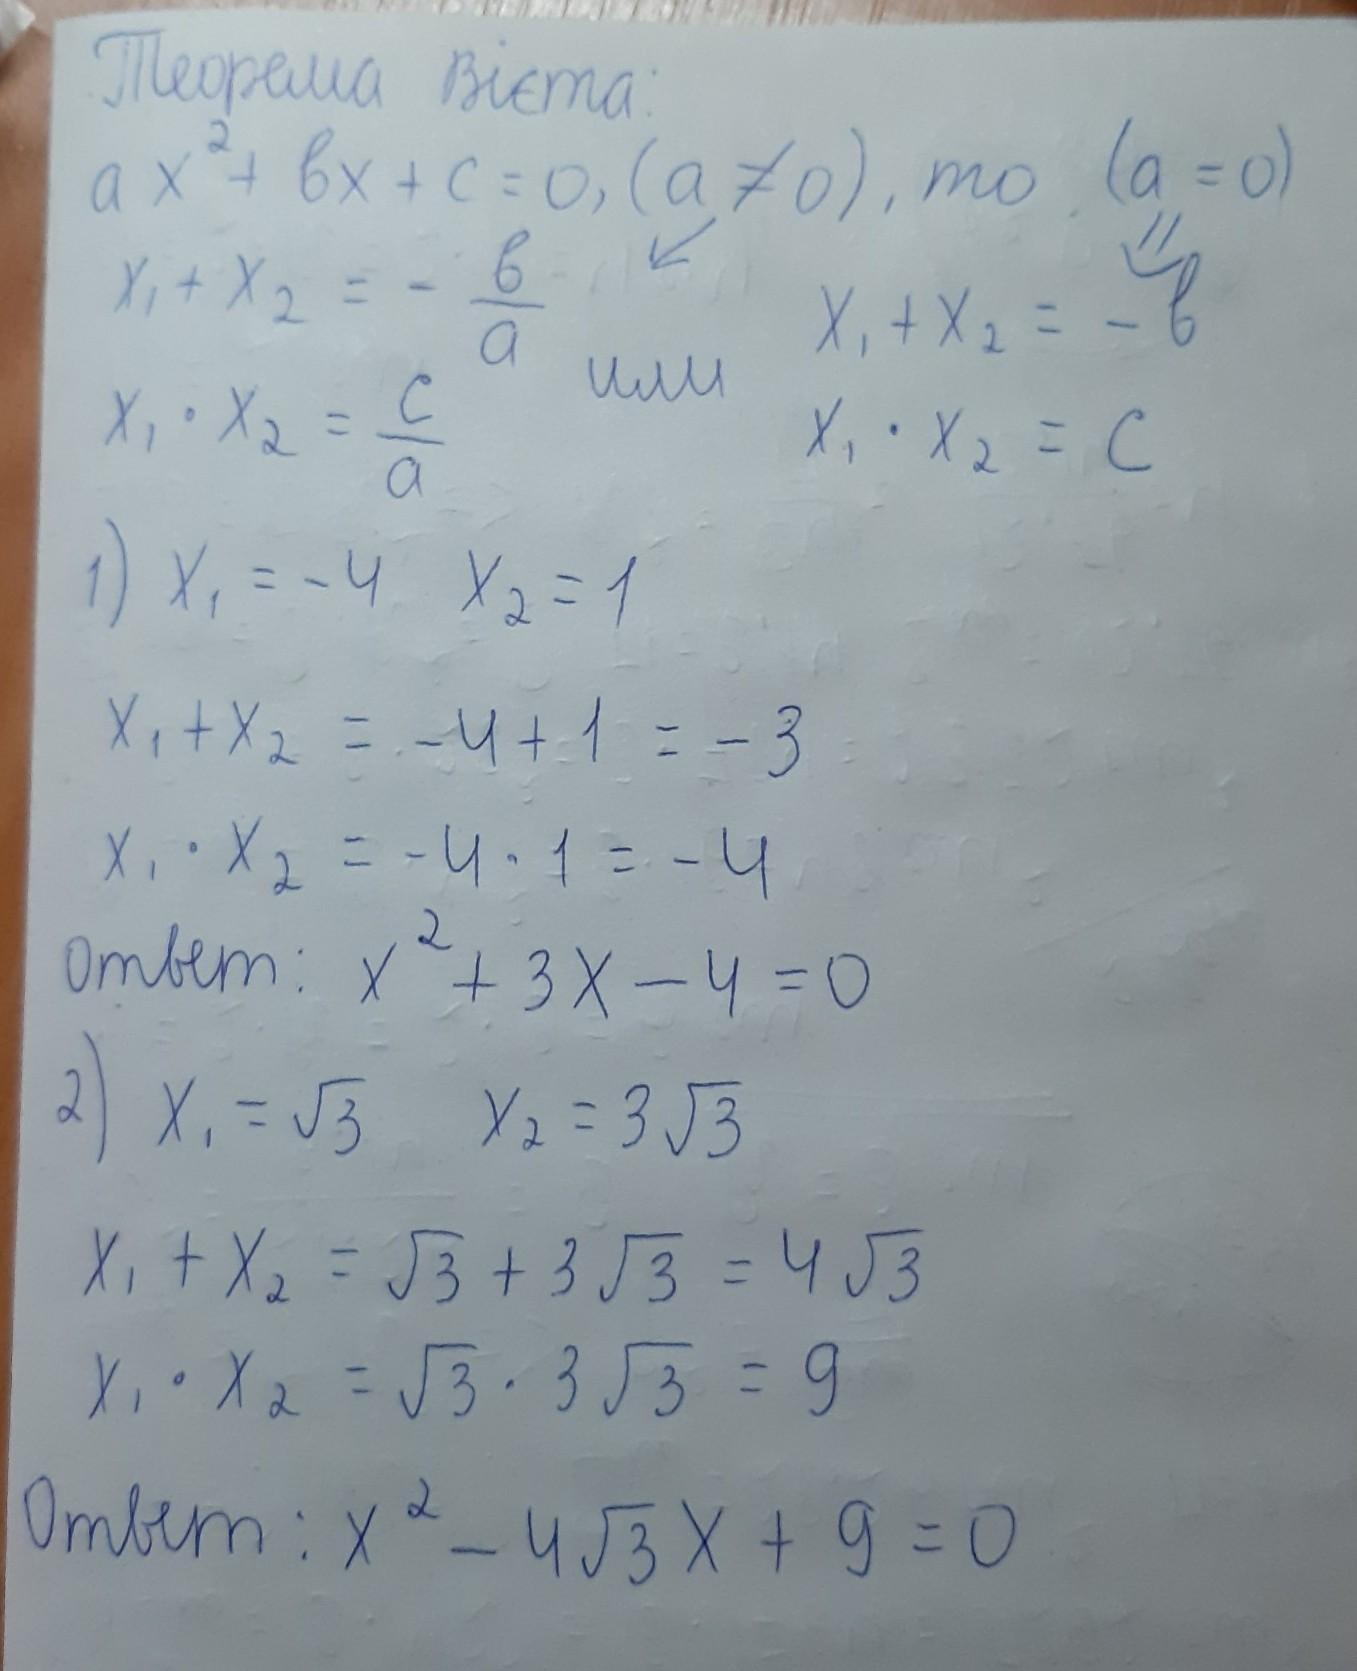 Теорема Вієта:
ax² + bx + c = 0, (a ≠ 0), то (a = 0)
x₁ + x₂ = - b/a
x₁ · x₂ = c/a
или
x₁ + x₂ = - b
x₁ · x₂ = c
1) x₁ = -4 x₂ = 1
x₁ + x₂ = -4 + 1 = -3
x₁ · x₂ = -4 · 1 = -4
Ответ: x² + 3x - 4 = 0
2) x₁ = √3 x₂ = 3√3
x₁ + x₂ = √3 + 3√3 = 4√3
x₁ · x₂ = √3 · 3√3 = 9
Ответ: x² - 4√3x + 9 = 0